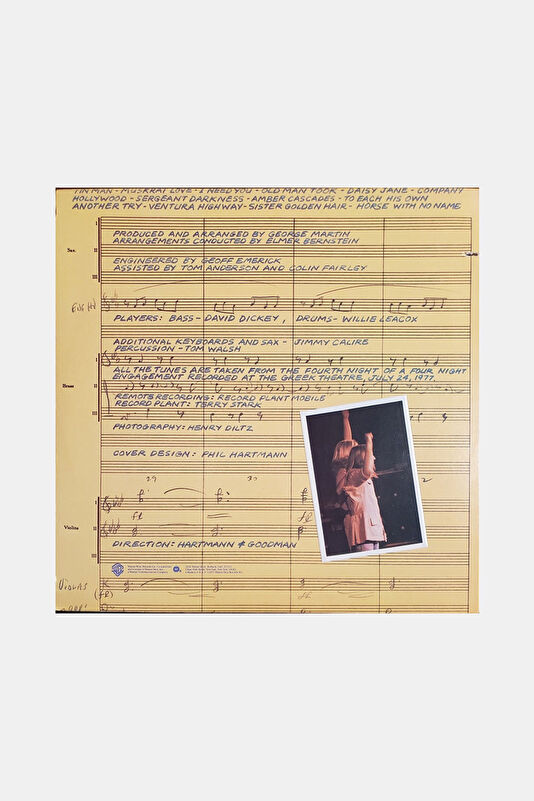 TIN MAN - MUSKRAT LOVE - I NEED YOU - OLD MAN TOOK - DAISY JANE - COMPANY
HOLLYWOOD - SERGEANT DARKNESS - AMBER CASCADES - TO EACH HIS OWN
ANOTHER TRY - VENTURA HIGHWAY - SISTER GOLDEN HAIR - HORSE WITH NO NAME
I
PRODUCED AND ARRANGED BY GEORGE MARTIN
ARRANGEMENTS CONDUCTED BY ELMER BERNSTEIN
Sax.
II
ENGINEERED BY GEOFF EMERICK
ASSISTED BY TOM ANDERSON AND COLIN FAIRLEY
III
PLAYERS: BASS - DAVID DICKEY, DRUMS - WILLIE LEACOX
ADDITIONAL KEYBOARDS AND SAX - JIMMY CALIRE
PERCUSSION - TOM WALSH
I
ALL THE TUNES ARE TAKEN FROM THE FOURTH NIGHT OF A FOUR NIGHT
ENGAGEMENT RECORDED AT THE GREEK THEATRE, JULY 24, 1977.
Brass
II
REMOTE RECORDING: RECORD PLANT MOBILE
RECORD PLANT: TERRY STARK
III
PHOTOGRAPHY: HENRY DILTZ
COVER DESIGN: PHIL HARTMANN
29 30
I
Violins
II
DIRECTION: HARTMANN & GOODMAN
III
VIOLAS